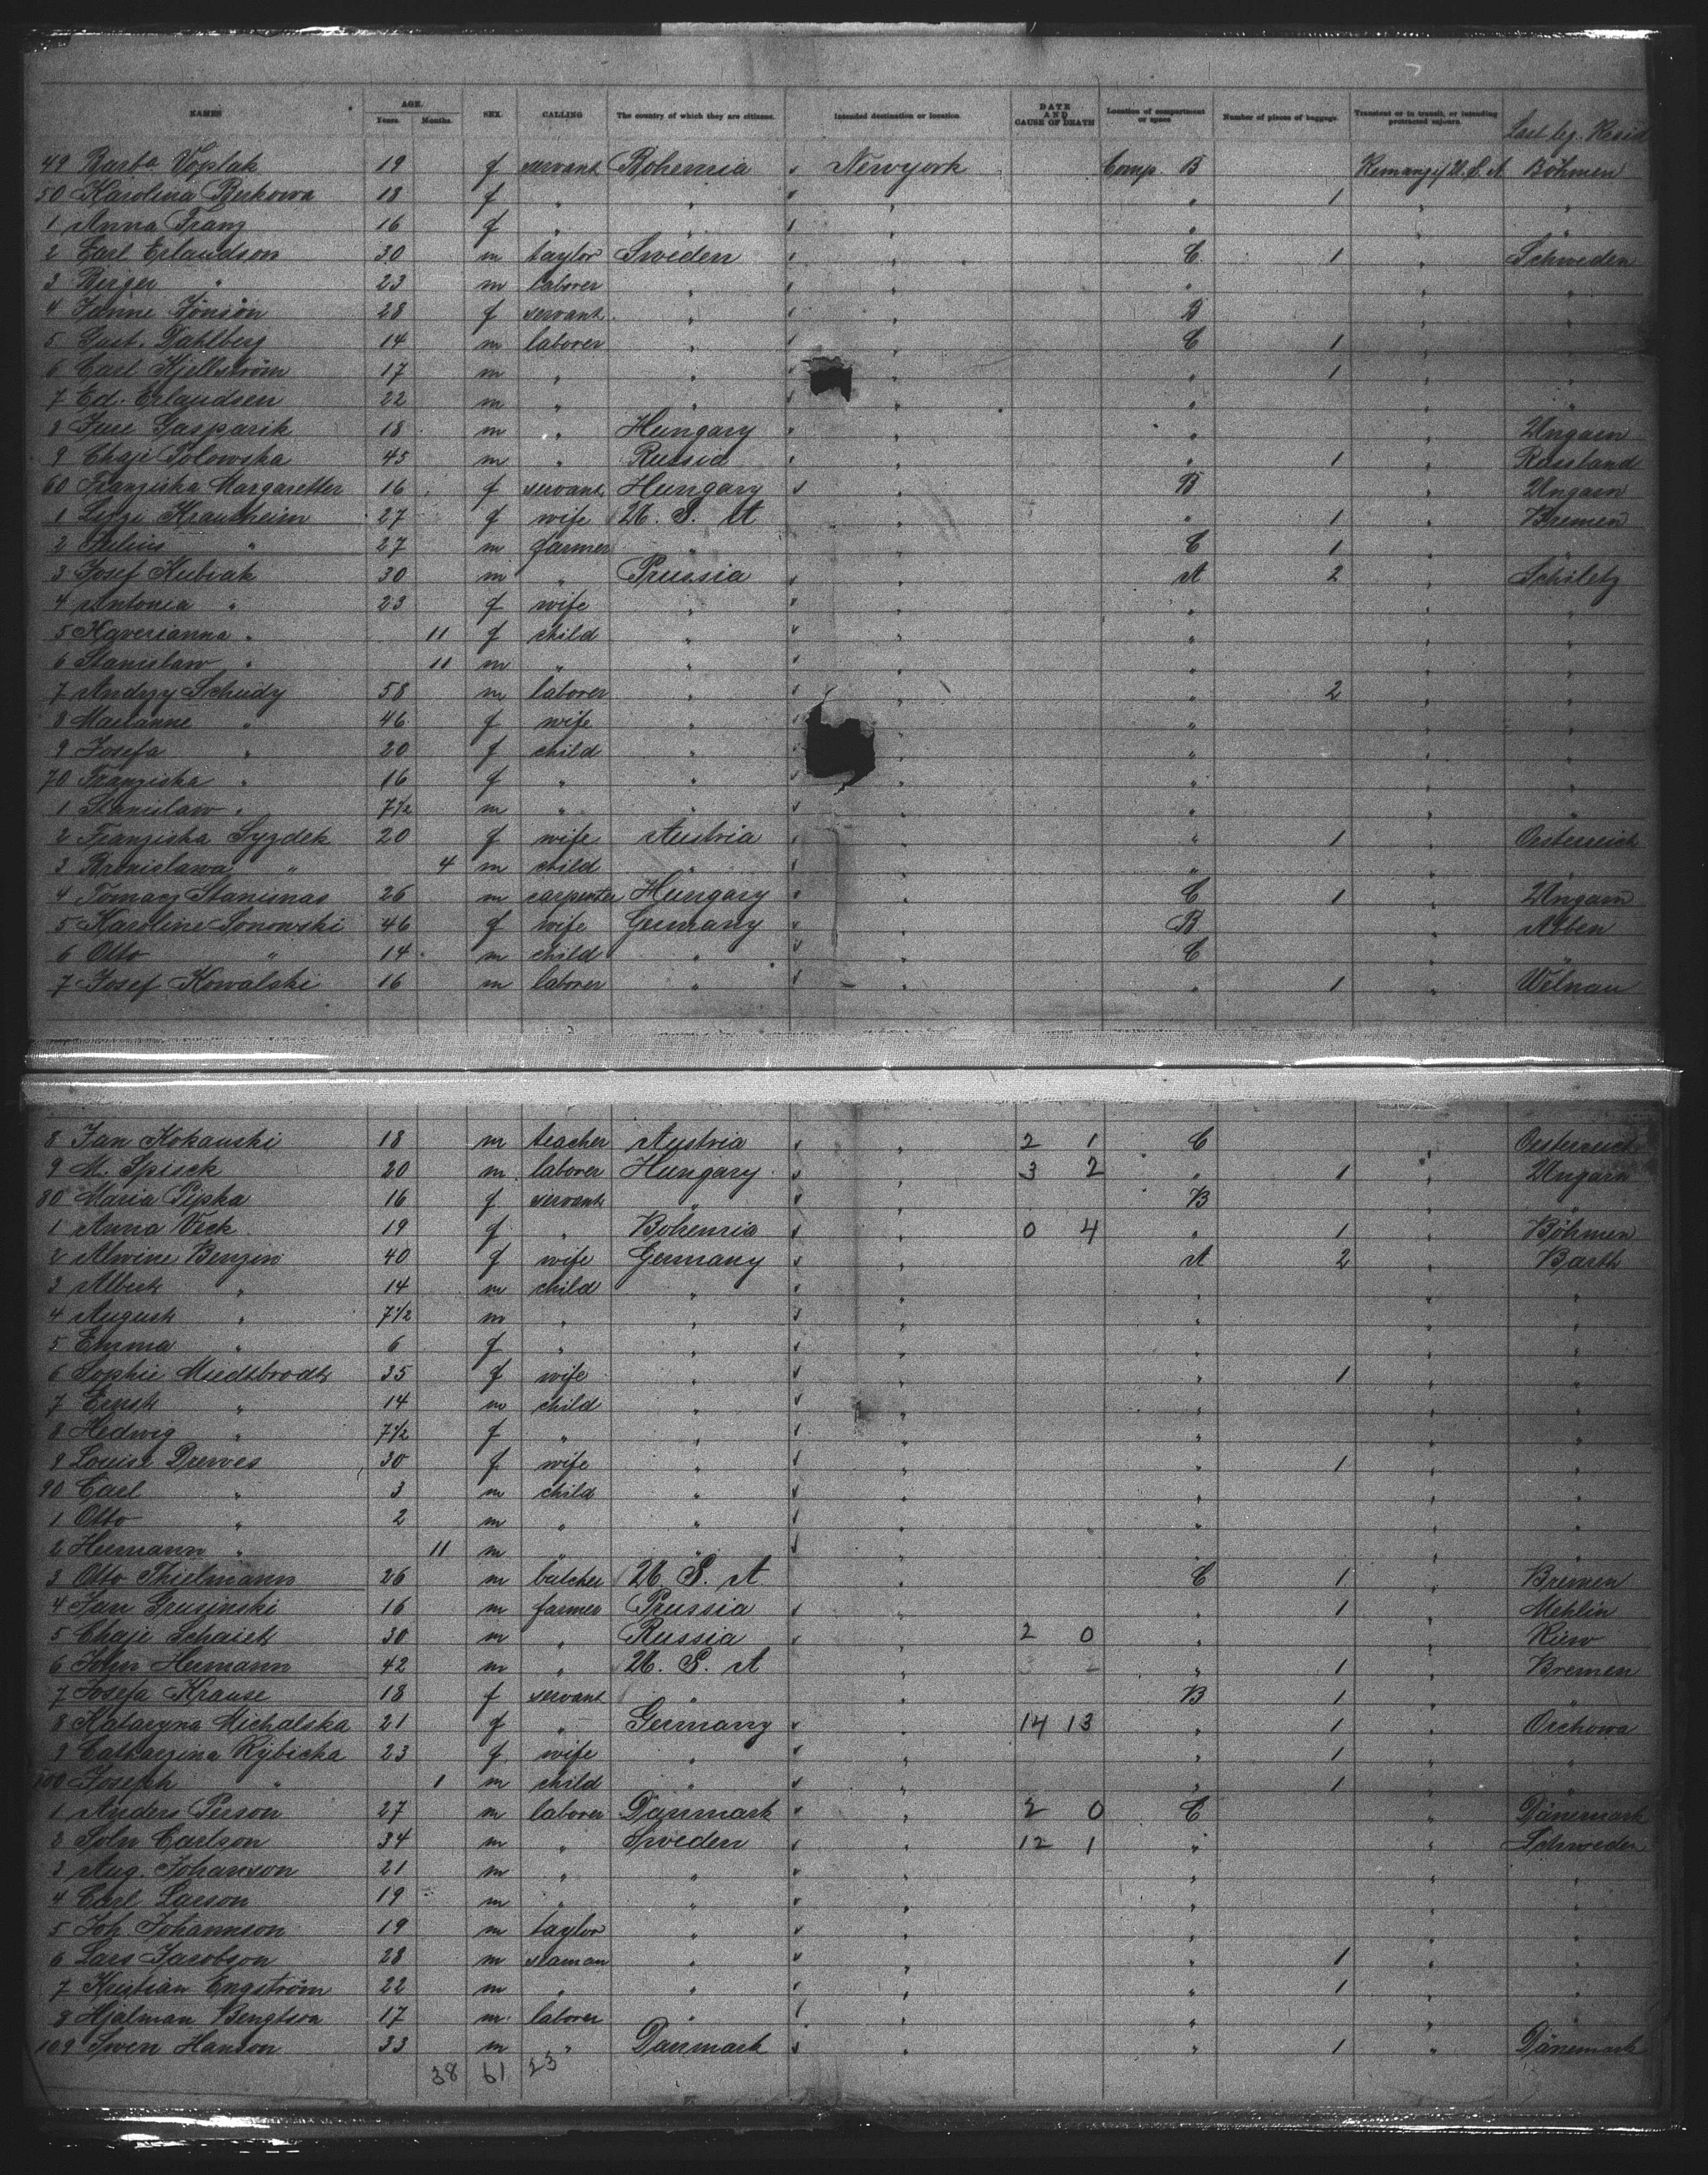 NAMES AGE. Years. Months. SEX. CALLING The country of which they are citizens. Intended destination or location. DATE AND CAUSE OF DEATH Location of compartment or space Number of pieces of baggage. Transient or in transit, or intending protracted sojourn. Last leg. Resid
49 Barba Voplak 19 f servant Bohemia Newyork Comp. B U. S. A Böhmen
50 Karolina Berkowa 18 f " " " " 1 " "
1 Anna Franz 16 f " " " " " "
2 Carl Erlaudson 30 m taylor Sweden " C 1 " Schweden
3 Berger " 23 m laborer " " " " "
4 Janne Jönson 28 f servant " " B " "
5 Gust. Dahlberg 14 m laborer " " C 1 " "
6 Carl Kjellström 17 m " " " " 1 " "
7 Ed. Erlaudsen 22 m " " " " " "
8 Jure Gasparik 18 m " Hungary " " " Ungarn
9 Chaje Polowska 45 m " Russia " " 1 " Russland
60 Franziska Margaretter 16 f servant Hungary " B " Ungarn
1 Krautheim 27 f wife U. S. A " " 1 " Bremen
2 Julius " 27 m farmer " " C 1 " "
3 Josef Kubiak 30 m " Prussia " A 2 " Schiletz
4 Antonia " 23 f wife " " " " "
5 Xaverianna " 11 f child " " " " "
6 Stanislaw " 11 m " " " " " "
7 Andrzy Schudy 58 m laborer " " " 2 " "
8 Marianne " 46 f wife " " " " "
9 Josefa " 20 f child " " " " "
70 Franziska " 16 f " " " " " "
1 Stanislaw " 7 1/2 m " " " " " "
2 Franziska Syzdek 20 f wife Austria " " 1 " Oesterreich
3 Bronislawa " 4 m child " " " " "
4 Tomacz Stanisnas 26 m carpenter Hungary " C 1 " Ungarn
5 Karoline Sonowski 46 f wife Germany " B " Abben
6 Otto " 14 m child " " C " "
7 Josef Kowalski 16 m laborer " " " 1 " Welnau
8 Jan Kokauski 18 m teacher Austria " 2 1 C " Oesterreich
9 M. Spisck 20 m laborer Hungary " 3 2 " 1 " Ungarn
80 Maria Pipka 16 f servant " " B " "
1 Anna Veck 19 f " Bohemia " 0 4 " 1 " Böhmen
2 Alwine Benzin 40 f wife Germany " A 2 " Barth
3 Albert " 14 m child " " " " "
4 August " 7 1/2 m " " " " " "
5 Emma " 6 f " " " " " "
6 Sophie Miedtbrodt 35 f wife " " " 1 " "
7 Ernst " 14 m child " " " " "
8 Hedwig " 7 1/2 f " " " " " "
9 Louise Drewes 30 f wife " " " 1 " "
90 Carl " 3 m child " " " " "
1 Otto " 2 m " " " " " "
2 Hermann " 11 m " " " " " "
3 Otto Thielmann 26 m butcher U. S. A " C 1 " Bremen
4 Jan Grusinski 16 m farmer Prussia " " 1 " Mehlin
5 Chaje Schaiet 30 m " Russia " 2 0 " " Kiew
6 John Hermann 42 m " U. S. A " 3 2 " 1 " Bremen
7 Josefa Krause 18 f servant " " B 1 " "
8 Kataryna Michalska 21 f " Germany " 14 13 " 1 " Orchowa
9 Catharzina Rybicka 23 f wife " " " 1 " "
100 Joseph " 1 m child " " " 1 " "
1 Anders Person 27 m laborer Danmark " 2 0 C " Dänemark
2 Soln Carlson 34 m " Sweden " 12 1 " " Schweden
3 Aug. Johanson 21 m " " " " " "
4 Carl Larson 19 m " " " " " "
5 Joh Johannson 19 m taylor " " " " "
6 Lars Jacobson 28 m seaman " " " 1 " "
7 Kristian Engström 22 m " " " " 1 " "
8 Hjalman Bengtson 17 m laborer " " " " "
109 Swen Hanson 33 m " Danmark " " 1 " Dänemark
38 61 23